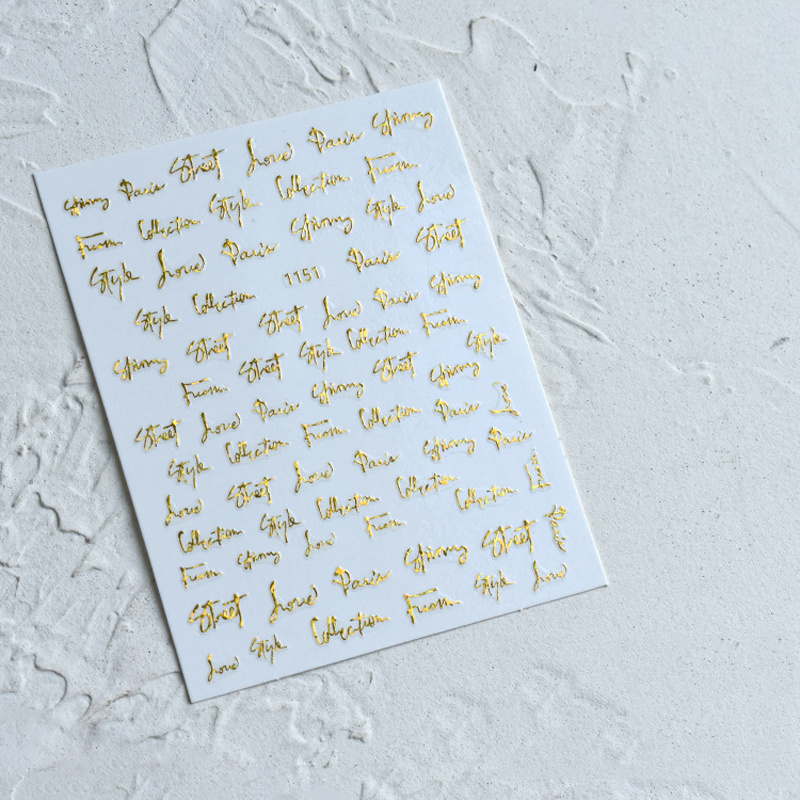 Paris Street Love Paris
From Collection Style Collection From
Style Love Paris Style Love
Style Collection 1151 Paris Street
Street Street Love Paris
From Street Style Collection From Style
Street Love Paris Street
Style Collection From Collection Paris
Love Street Love Paris Paris
Collection Style Collection Collection Collection
From Love From
Street Love Paris Street Paris
Love Style Collection From Style Love